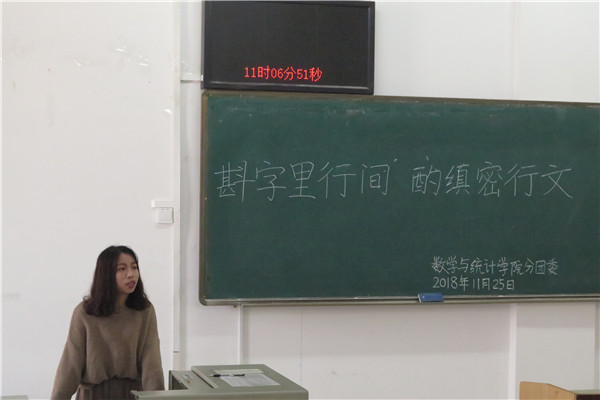 11时06分51秒
斟字里行间 酌缜密行文
数学与统计学院分团委
2018年11月25日